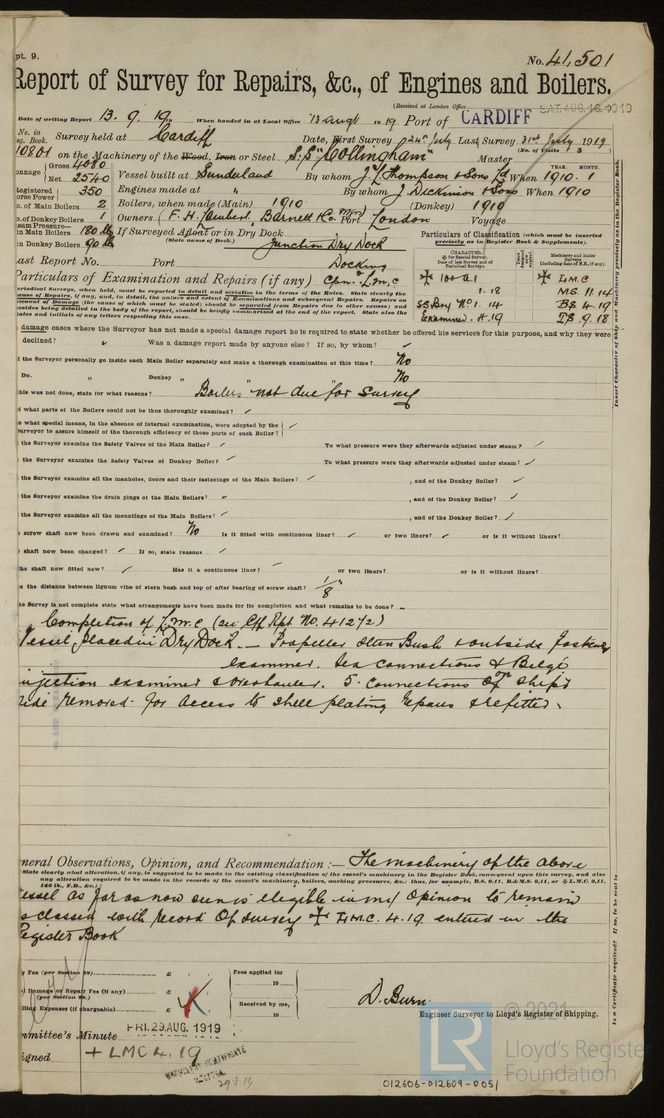 pt. 9.
No. 41,501
Report of Survey for Repairs, &c., of Engines and Boilers.
(Received at London Office
SAT. AUG. 16. 1919
Date of writing Report 13. 9. 19 When handed in at Local Office 13 augt in 19 Port of CARDIFF
No. in
eg. Book. Survey held at Cardiff Date, First Survey 24th July Last Survey 31st July 1919
(No. of Visits 3 )
10801 on the Machinery of the Wood, Iron or Steel S.S "Collingham" Master
onnage Gross 4080
Net 2540 Vessel built at Sunderland By whom J. L. Thompson & Sons Ld When 1910. 1
YEAR. MONTH.
Registered Horse Power 350 Engines made at " By whom J Dickinson & Sons When 1910
o. of Main Boilers 2 Boilers, when made (Main) 1910 (Donkey) 1910
o. of Donkey Boilers 1 Owners (F. H. Lambert, Barnett & Co. Mgrs) Port London Voyage
team Pressure—
in Main Boilers 180 lb If Surveyed Afloat or in Dry Dock
(State name of Dock.) Junction Dry Dock
in Donkey Boilers 90 lb
ast Report No. Port Docking
Particulars of Classification (which must be inserted
precisely as in Register Book & Supplements).
CHARACTER.
Machinery and Boiler Surveys
(including date of N.B., if any).
✠ 100 A1
1. 18
SS Dry No 1. 14
Examined. 4.19
✠ LMC
MS. 11. 14
BS 4. 19
TS 9. 18
Particulars of Examination and Repairs (if any) Cpn. LMC
damage cases where the Surveyor has not made a special damage report he is required to state whether he offered his services for this purpose, and why they were
declined? Was a damage report made by anyone else? If so, by whom?
d the Surveyor personally go inside each Main Boiler separately and make a thorough examination at this time? No
Do. " Donkey " " " No
this was not done, state for what reasons? Boilers not due for survey
d what parts of the Boilers could not be thus thoroughly examined?
o what special means, in the absence of internal examination, were adopted by the
urveyor to assure himself of the thorough efficiency of those parts of each Boiler?
the Surveyor examine the Safety Valves of the Main Boiler? To what pressure were they afterwards adjusted under steam?
the Surveyor examine the Safety Valves of Donkey Boiler? To what pressure were they afterwards adjusted under steam?
the Surveyor examine all the manholes, doors and their fastenings of the Main Boilers? , and of the Donkey Boiler?
the Surveyor examine the drain plugs of the Main Boilers? , and of the Donkey Boiler?
the Surveyor examine all the mountings of the Main Boilers? , and of the Donkey Boiler?
screw shaft now been drawn and examined? No Is it fitted with continuous liner? or two liners? or is it without liners?
shaft now been changed? If so, state reasons
he shaft now fitted new? Has it a continuous liner? or two liners? or is it without liners?
e the distance between lignum vitæ of stern bush and top of after bearing of screw shaft? 1/8"
he Survey is not complete state what arrangements have been made for its completion and what remains to be done?
Completion of LMC (see Cff Rpt No. 41272)
Vessel placed in Dry Dock. — Propeller Stern Bush & outside fastenings
examined. Sea connections & Belge
injection examined & overhauled. 5. connections on ship's
side removed for access to shell plating repairs & refitted.
neral Observations, Opinion, and Recommendation :— The machinery of the above
(State clearly what alteration, if any, is suggested to be made in the existing classification of the vessel's machinery in the Register Book, consequent upon this survey, and also
any alteration required to be made in the records of the vessel's machinery, boilers, working pressures, &c.; thus, for example, B.S. 9,11, B.&M.S. 9,11, or ✠ L.M.C. 9,11.
140 lb., F.D., &c.)
essel as far as now seen is eligible in my opinion to remain
s classed with record of survey ✠ LMC. 4.19 entered in the
Register Book
y Fee (per Section 28) £
l Damage or Repair Fee (if any) £
(per Section 28.)
lling Expenses (if chargeable) £
Fees applied for
19
Received by me,
19
D. Burn.
Engineer Surveyor to Lloyd's Register of Shipping.
mmittee's Minute FRI. 29 AUG. 1919
igned + LMC 4. 19
29.8.19
© 2021
LR
Lloyd's Register
Foundation
012606-012609-0051
Is a Certificate required? If so, to be sent to